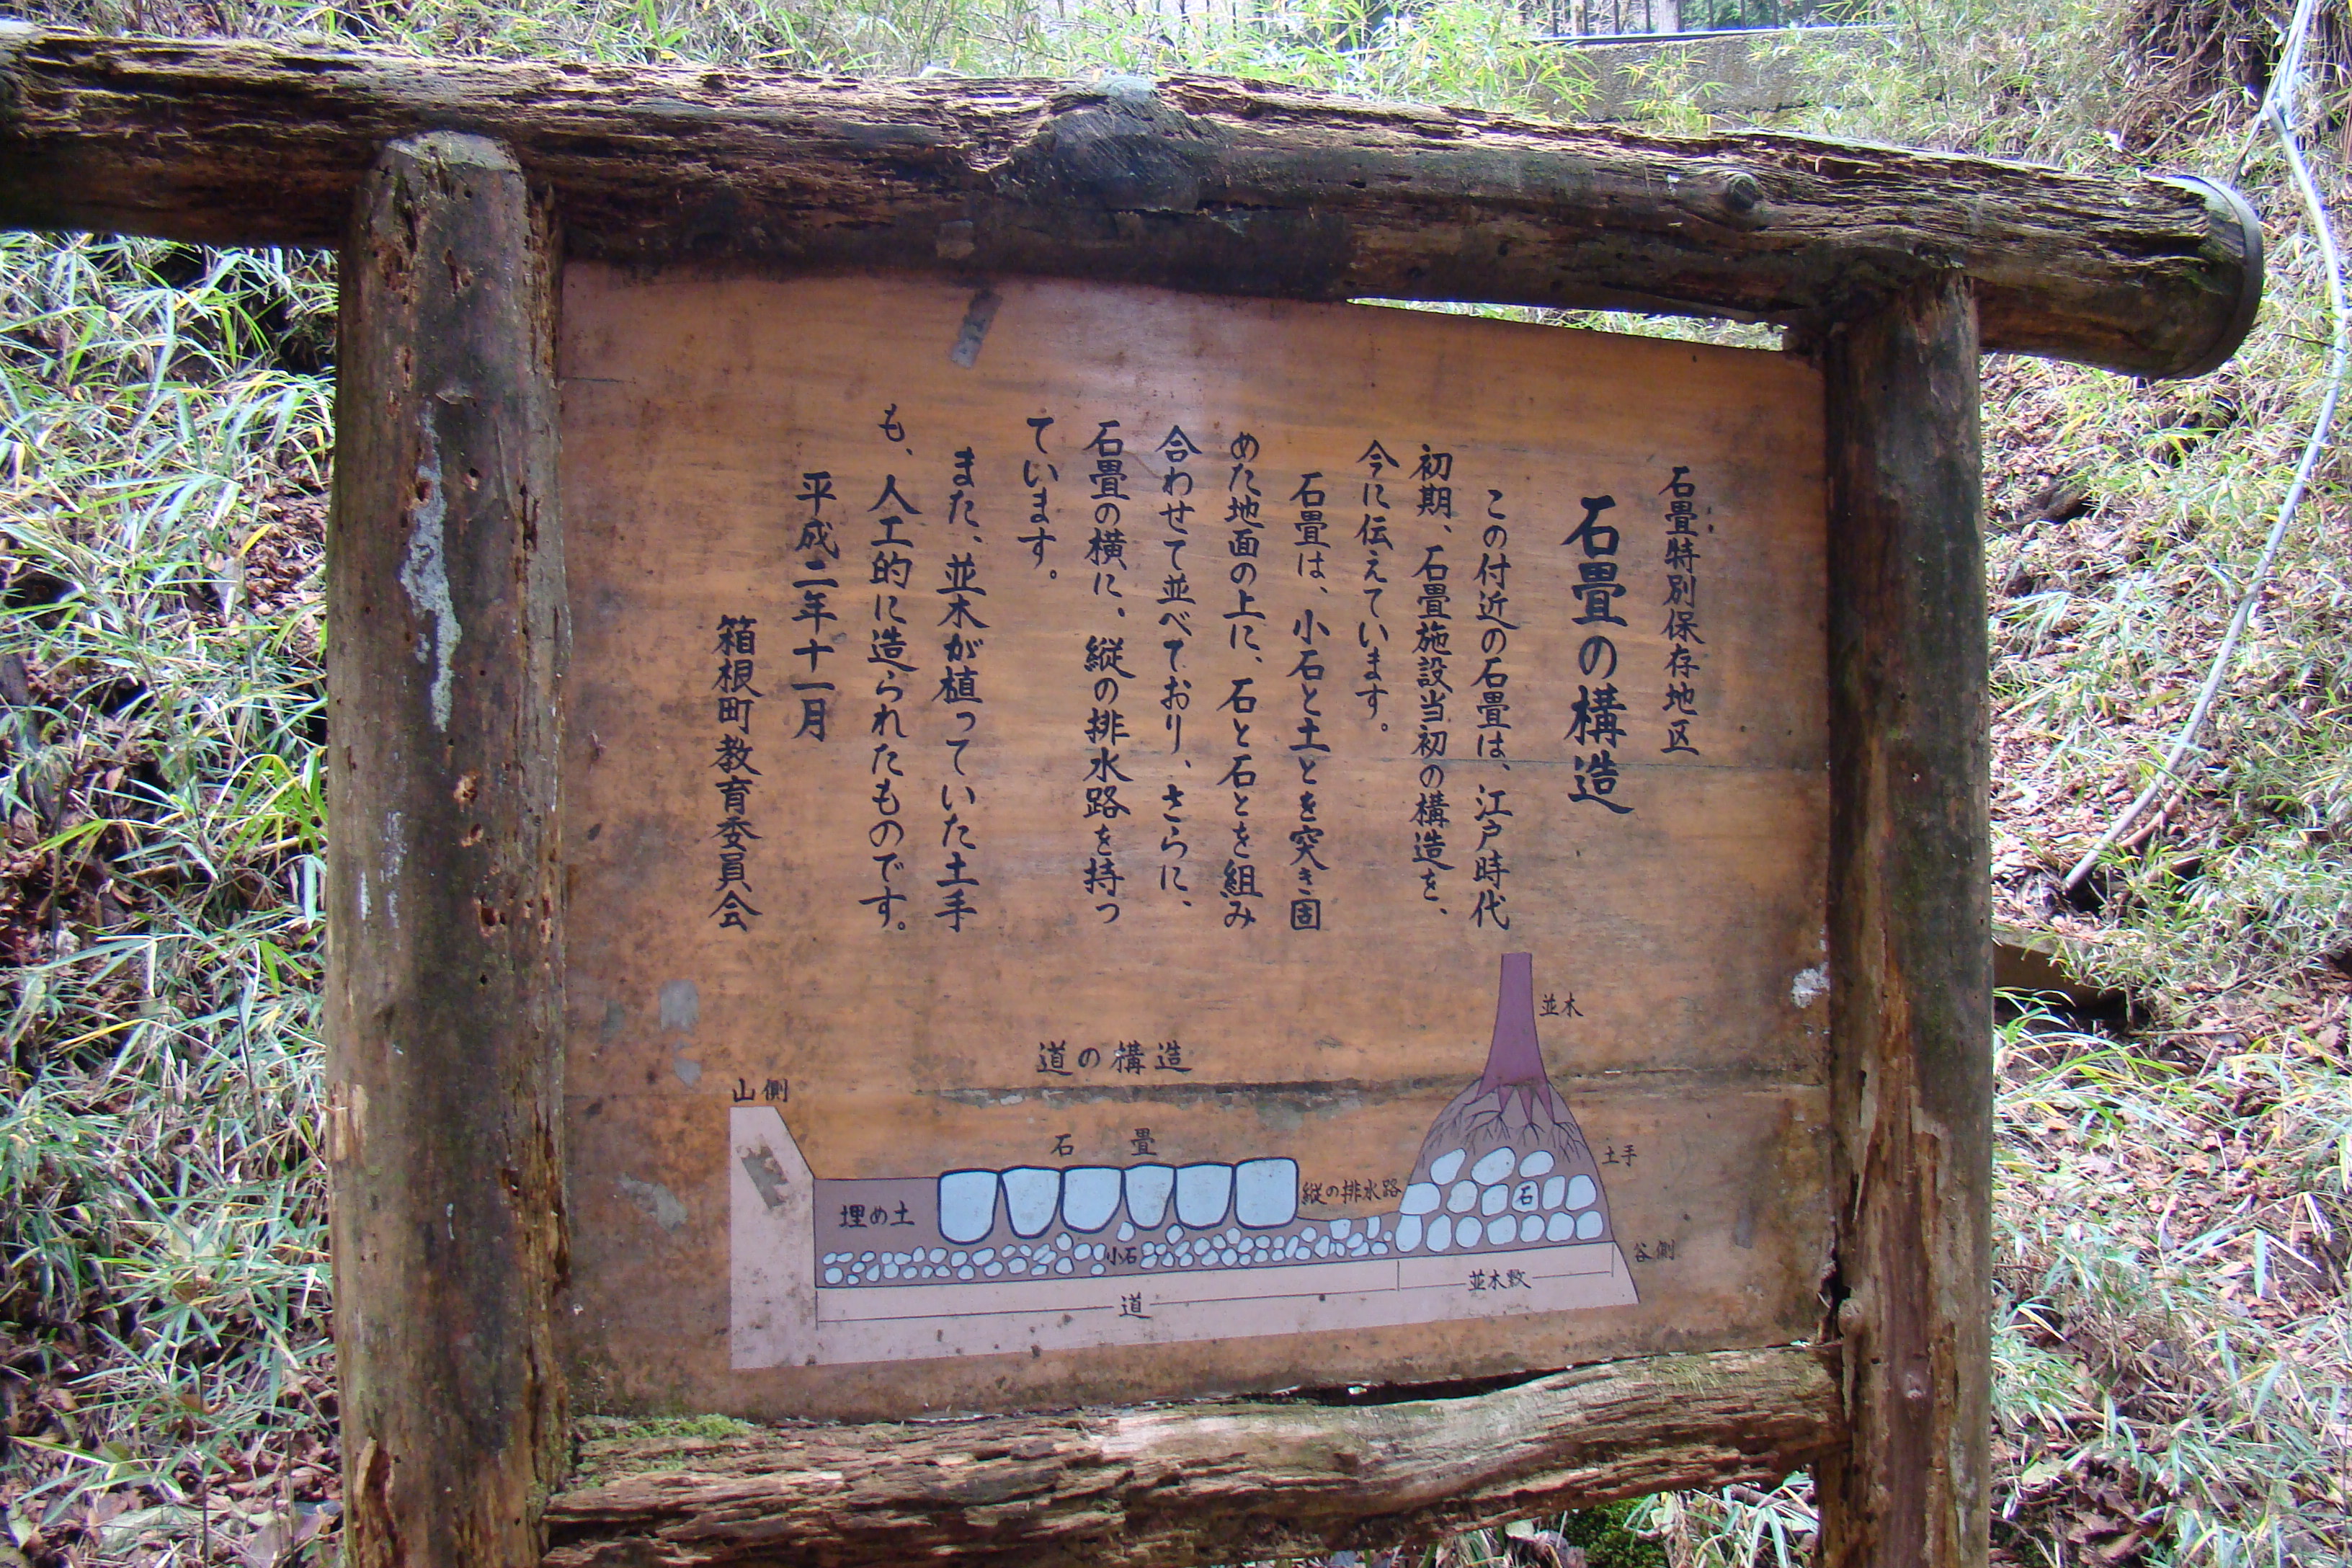 石畳特別保存地区
石畳の構造
この付近の石畳は、江戸時代
初期、石畳施設当初の構造を、
今に伝えています。
石畳は、小石と土とを突き固
めた地面の上に、石と石とを組み
合わせて並べており、さらに、
石畳の横に、縦の排水路を持っ
ています。
また、並木が植っていた土手
も、人工的に造られたものです。
平成二年十一月
箱根町教育委員会
道の構造
並木
山側
石畳
土手
縦の排水路
石
埋め土
小石
谷側
並木敷
道